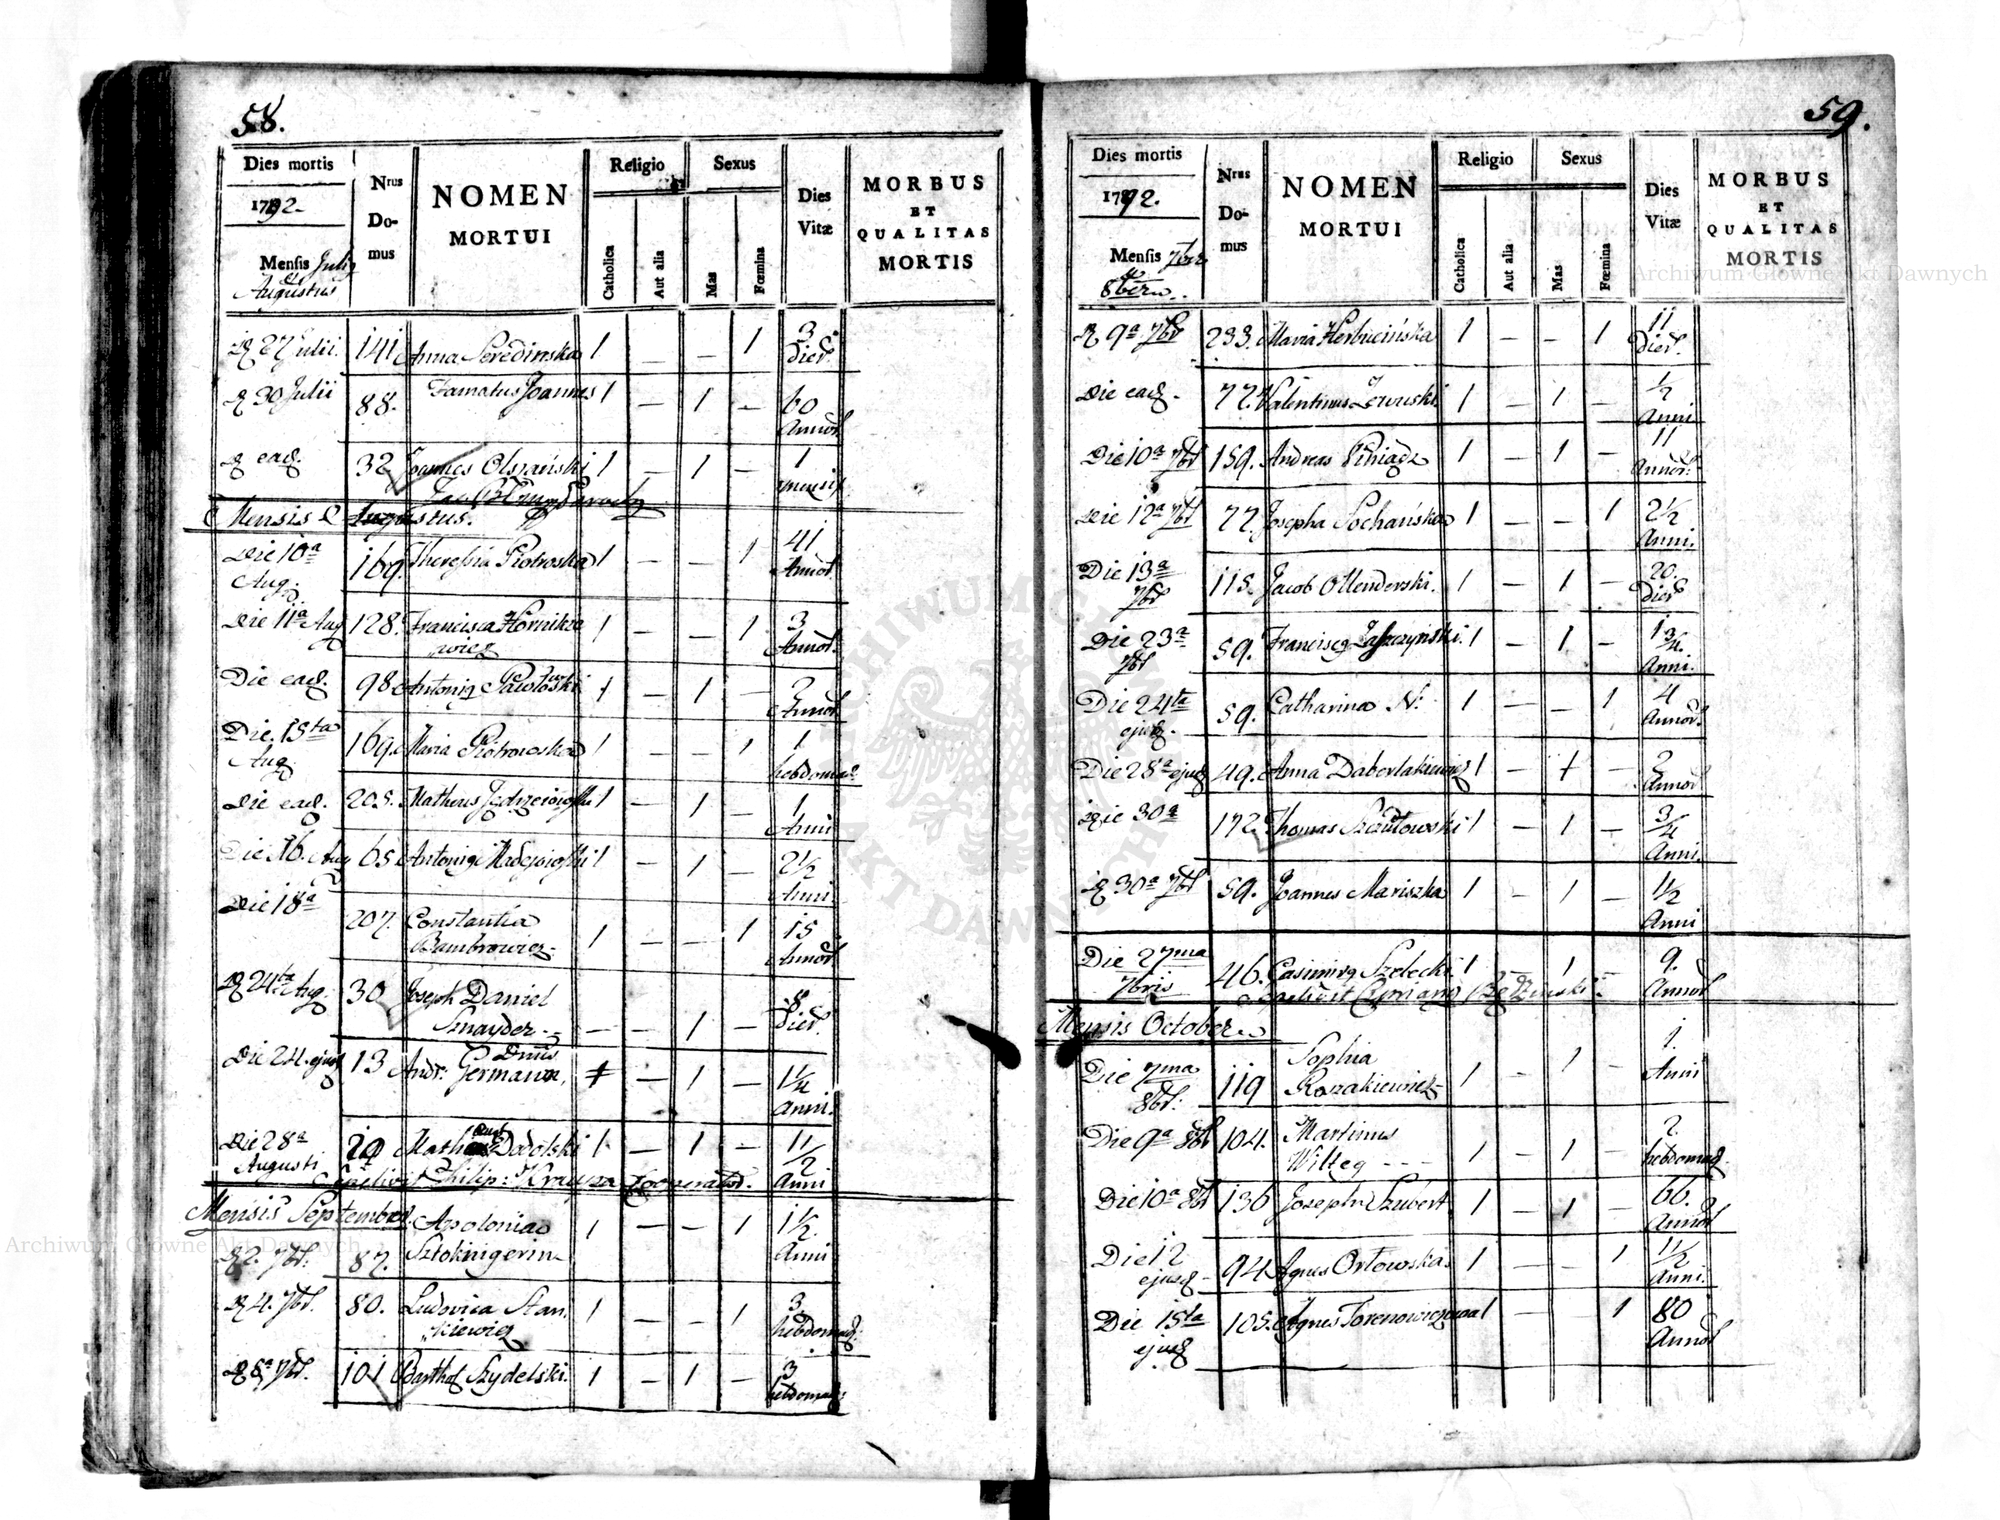 58.
Dies mortis
1792.
Mensis Julij
et
Augustus
Nrus
Do-
mus
NOMEN
MORTUI
Religio
Catholica
Aut alia
Sexus
Mas
Fœmina
Dies
Vitæ
MORBUS
ET
QUALITAS
MORTIS
27 Julii. 141 Anna Seredinska 1 — — 1 3 Dier.
30 Julii 88. Famatus Joannes 1 — 1 — 60 Annor
ead. 32 Joannes Olszański 1 — 1 — 1 mensis
Mensis Augustus.
Die 10a Aug. 169. Theressia Piotroska 1 — — 1 41 Annor.
Die 11a Aug 128. Francisca Hornike
wicz 1 — — 1 3 Annor.
Die ead. 98 Antonig Pawłowski 1 — 1 — 2 Annor
Die 15ta Aug. 169. Maria Piotrowska 1 — — 1 1 hebdomad.
Die ead. 205. Matheus 1 — 1 — 1 Anni
Die 16. Aug 65 Antonig 1 — 1 — 2½ Anni
Die 18a 207. Constantia
Bambrowicz 1 — — 1 15 Annor
24ta Aug. 30 Joseph Daniel
Sznayder — — 1 — 8 Dier.
Die 24. ejusd 13 Dnus
Andr: German — 1 — 1¼ Anni.
Die 28a Augusti 29 Dadolski 1 — 1 — 1½ Anni
Philip: Krauza Cooperator.
Mensis Septembris.
2. 7br. 87. Apolonia
Sztokingerin 1 — — 1 1½ Anni
4. 7br. 80. Ludovica Stan
kiewicz 1 — — 1 3 hebdomad:
8a 7br. 101 Barthol Szydelski. 1 — 1 — 3 hebdomad:
59.
Dies mortis
1792.
Mensis 7bre
et
8bern.
Nrus
Do-
mus
NOMEN
MORTUI
Religio
Catholica
Aut alia
Sexus
Mas
Fœmina
Dies
Vitæ
MORBUS
ET
QUALITAS
MORTIS
9a 7br 233. Maria Herbucińska 1 — — 1 11 Dier.
Die ead. 77. Valentinus 1 — 1 — ½ Anni
Die 10a 7br 159. Andreas Piniądz 1 — 1 — 11 Annor.
Die 12a 7br 77. Josepha Sochańska 1 — — 1 2½ Anni.
Die 13a 7br 115. Jacob Ollenderski. 1 — 1 — 20. Dier
Die 23a 7br 59. Francisg 1 — 1 — 1¾. Anni.
Die 24ta ejusd. 59. Catharina N. 1 — — 1 4 Annor.
Die 28a ejusd 49. Anna Daberlakiewicz 1 — 1 — 2 Annor
Die 30a 172. Thomas Szadłowski 1 — 1 — ¾ Anni.
30a 7br 59. Joannes Mariszka 1 — 1 — 1½ Anni
Die 27ma 7bris 46. Casimirg Szelecki. 1 1 9. Annor
Sepelivit Cyprian
Mensis October
Die 7ma 8br. 119 Sophia
Kozakiewicz 1 — 1 — 1. Anni
Die 9a 8br 104. Martinus
Witteg 1 — 1 — 2. hebdomad.
Die 10a 8br 136 Joseph Szubert 1 — 1 — 66. Annor
Die 12 ejusd 94 Agnes Orłowska 1 — — 1 1½ Anni.
Die 15ta ejusd 105. Agnes Torenowiczowa 1 — 1 80 Annor
ARCHIWUM GŁÓWNE AKT DAWNYCH
Archiwum Główne Akt Dawnych
Archiwum Główne Akt Dawnych